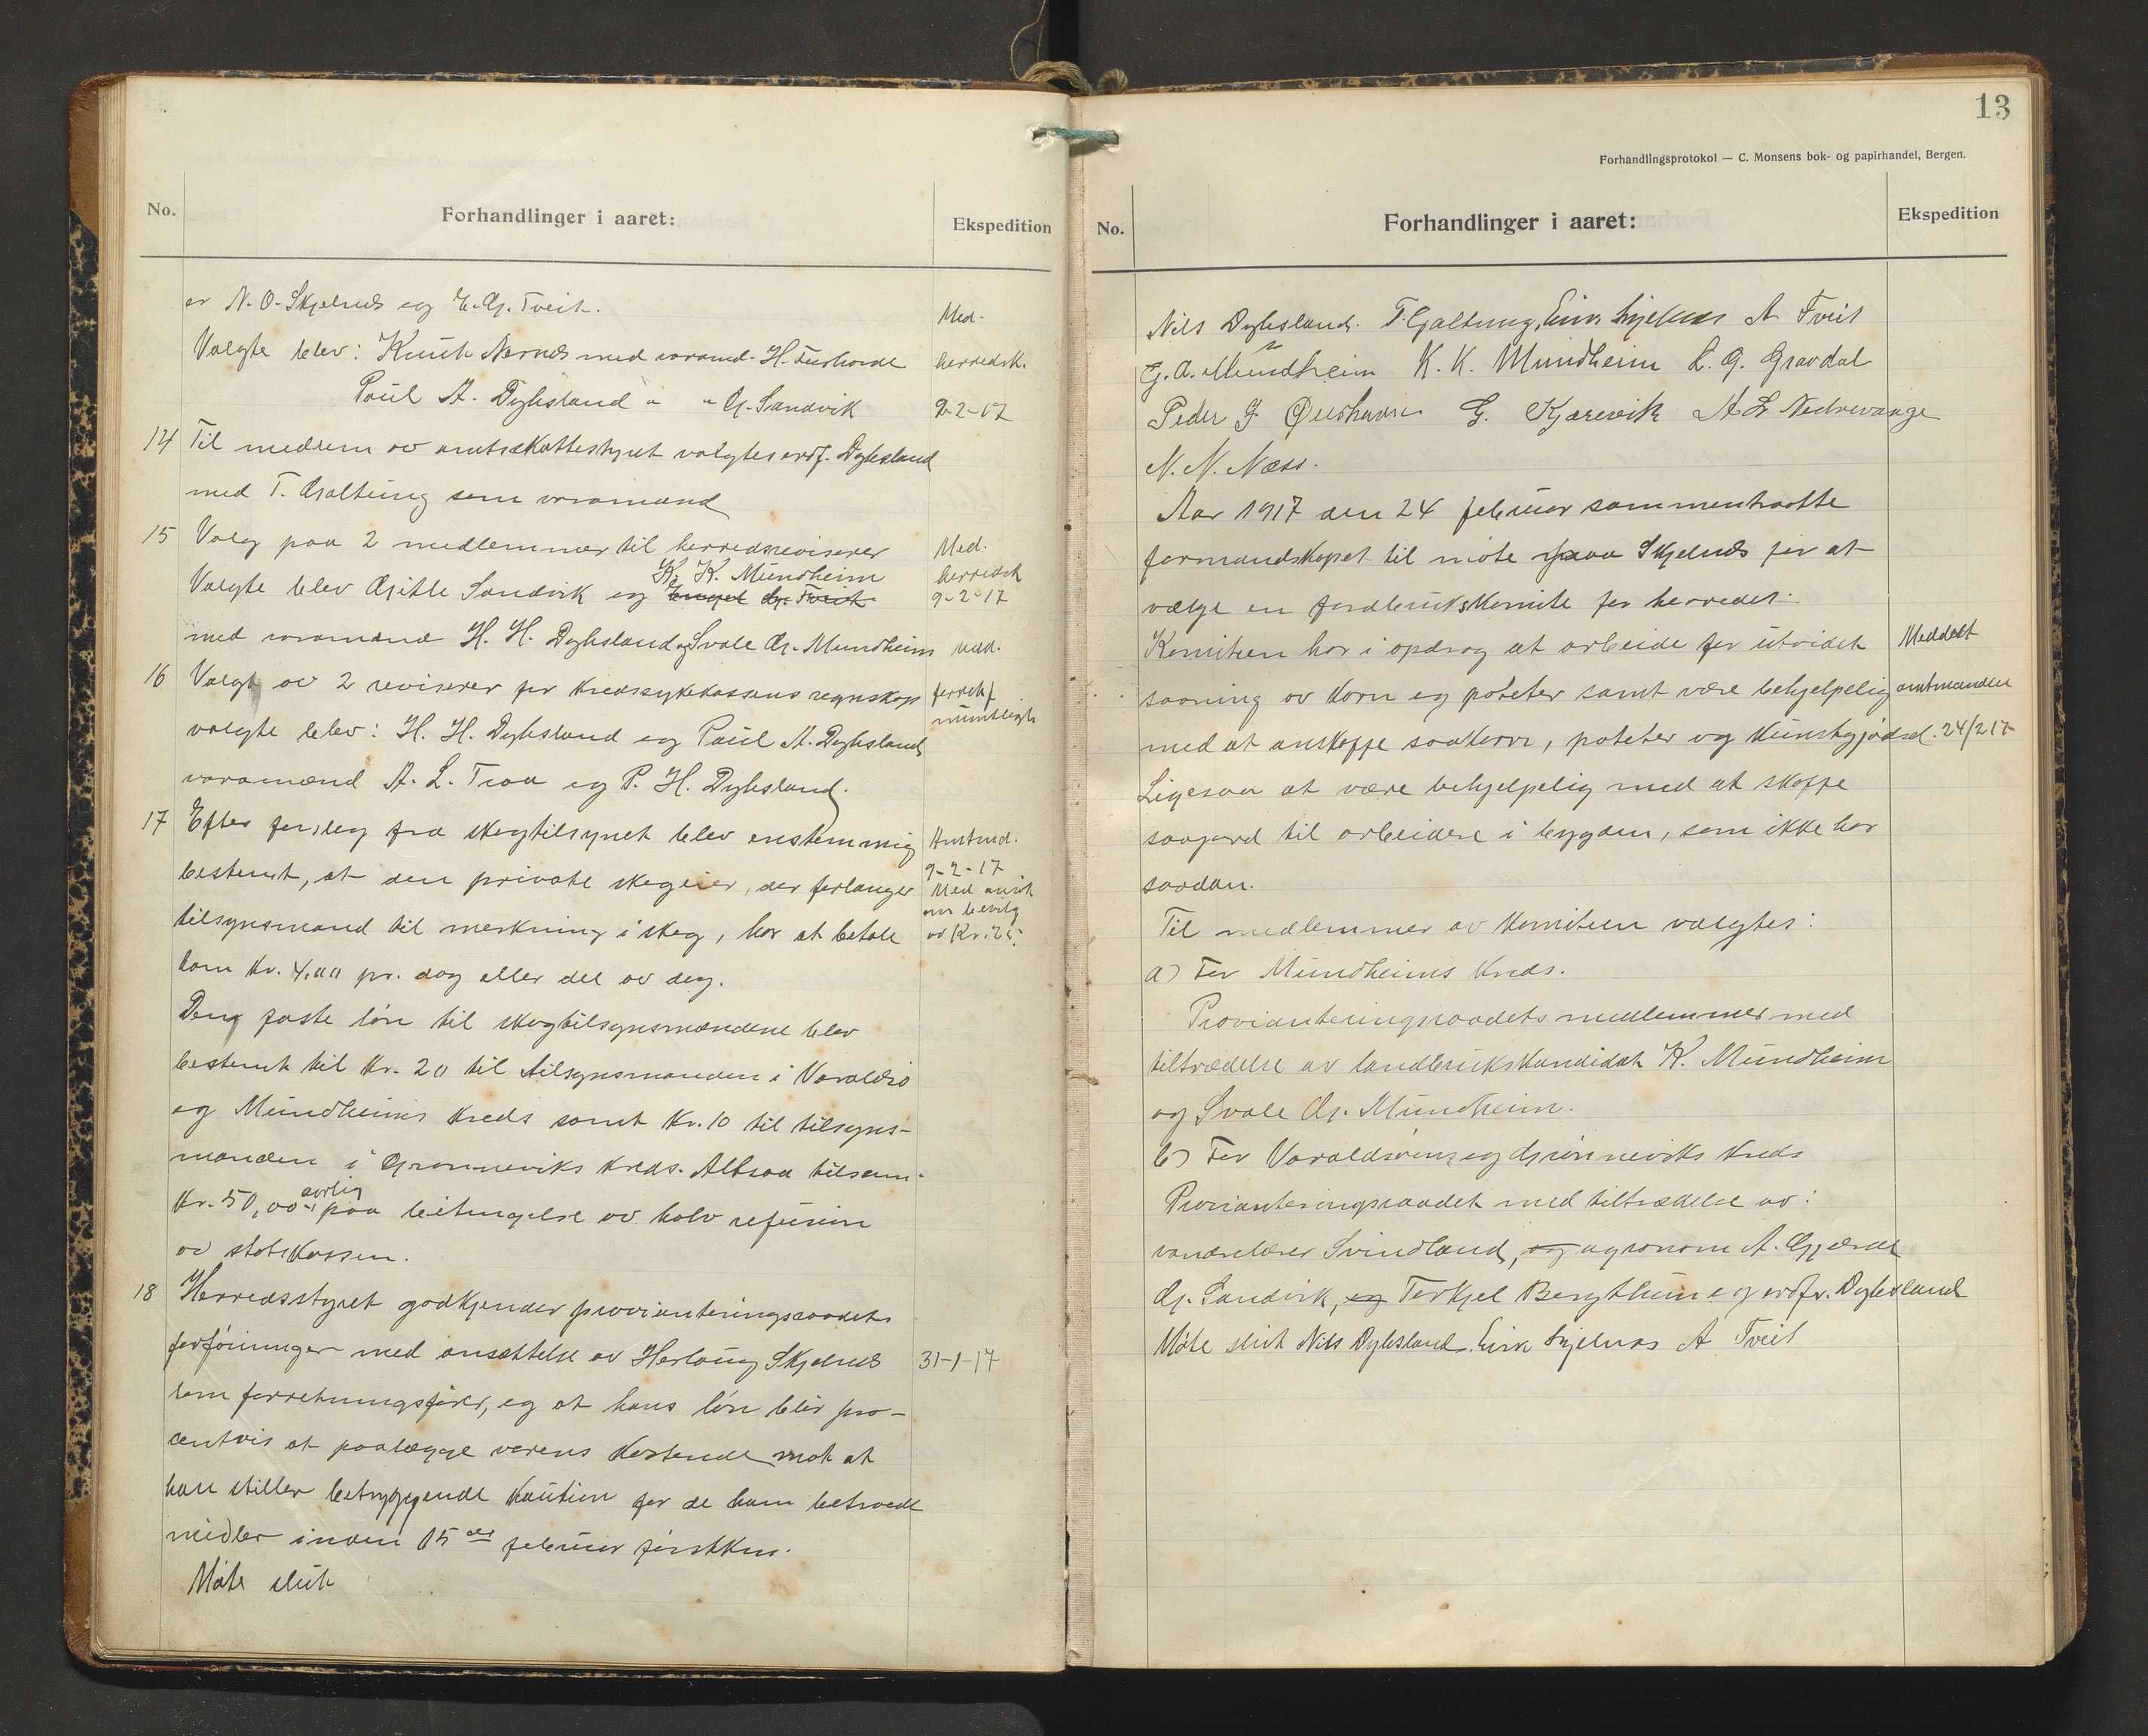 No.
Forhandlinger i aaret:
Ekspedition
av N. O. Skjelnes og E. Gj. Tveit.
Med.
Valgte blev: Knut Nernes med varamd. H. Furhovde
herredsk.
Paul A. Dyhsland " " G. Sandvik
9-2-17
14 Til medlem av amtsskattestyret valgtes ordf. Dyhsland
med T. Galtung som varamand
15 Valg paa 2 medlemmer til herredsreviserer
Med.
K. K. Mundheim
herredsk
Valgte blev Gitle Sandvik og Engel Gj. Tveit
9-2-17
med varamænd H. H. Dyhsland og Svale Gj. Mundheim
Med.
16 Valgt av 2 reviserer for kredssykekassens regnskap
forretf
mundtligt
valgte blev: H. H. Dyhsland og Paul A. Dyhsland
varamænd A. L. Troa og P. H. Dyhsland.
17 Efter forslag fra skogtilsynet blev enstemmig
Amtmd.
9-2-17
bestemt, at den private skogeier, der forlanger
Med ansøk
om bevilg
tilsynsmand til merkning i skog, har at betale
av Kr. 25.
ham Kr. 4,00 pr. dag eller del av dag.
Den faste løn til skogtilsynsmændene blev
bestemt til Kr. 20 til tilsynsmanden i Varaldsø
og Mundheims kreds samt Kr. 10 til tilsyns-
manden i Grønneviks kreds. Altsaa tilsam.
aarlig
Kr. 50,00 paa betingelse av halv refusion
av statskassen.
18 Herredsstyret godkjender provianteringsraadets
forføininger med ansættelse av Herlaug Skjelnes
31-1-17
som forretningsfører, og at hans løn blir pro-
centvis at paalægge varens kostende mot at
han stiller betryggende kaution for de ham betroede
midler inden 15de februar førstkm.
Møte slut
13
Forhandlingsprotokol — C. Monsens bok- og papirhandel, Bergen.
No.
Forhandlinger i aaret:
Ekspedition
Nils Dyhsland. T. Galtung, Eirik Skjelnes A Tveit
G. A. Mundheim K. K. Mundheim L. G. Gravdal
Peder J Øierhavn G. Kjærevik A L Nedrevaage
N. N. Næss.
Aar 1917 den 24 februar sammentraatte
formandskapet til møte paa Skjelnes for at
vælge en jordbrukskomite for herredet.
Komiteen har i opdrag at arbeide for utvidet
Meddelt
saaning av korn og poteter samt være behjelpelig
amtmanden
med at anskaffe saakorn, poteter og kunstgjødsel.
24/2 17
Ligesaa at være behjelpelig med at skaffe
saajord til arbeidere i bygden, som ikke har
saadan.
Til medlemmer av komiteen valgtes:
a) For Mundheims kreds.
Provianteringsraadets medlemmer med
tiltrædelse av landbrukskandidat K. Mundheim
og Svale Gj. Mundheim.
b) For Varaldsøens og Grønneviks kreds
Provianteringsraadet med tiltrædelse av:
vandrelærer Svindland, og agronom A. Gjerde
G. Sandvik, og Torkjel Bergthun og ordfr. Dyhsland
Møte slut Nils Dyhsland. Eirik Skjelnes A Tveit